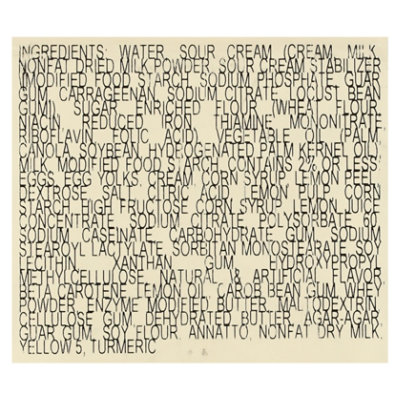 INGREDIENTS: WATER, SOUR CREAM (CREAM, MILK,
NONFAT DRIED MILK POWDER, SOUR CREAM STABILIZER
(MODIFIED FOOD STARCH, SODIUM PHOSPHATE, GUAR
GUM, CARRAGEENAN, SODIUM CITRATE, LOCUST BEAN
GUM)), SUGAR, ENRICHED FLOUR (WHEAT FLOUR,
NIACIN, REDUCED IRON, THIAMINE MONONITRATE,
RIBOFLAVIN, FOLIC ACID), VEGETABLE OIL (PALM,
CANOLA, SOYBEAN, HYDROGENATED PALM KERNEL OIL),
MILK, MODIFIED FOOD STARCH, CONTAINS 2% OR LESS:
EGGS, EGG YOLKS, CREAM, CORN SYRUP, LEMON PEEL,
DEXTROSE, SALT, CITRIC ACID, LEMON PULP, CORN
STARCH, HIGH FRUCTOSE CORN SYRUP, LEMON JUICE
CONCENTRATE, SODIUM CITRATE, POLYSORBATE 60,
SODIUM CASEINATE, CARBOHYDRATE GUM, SODIUM
STEAROYL LACTYLATE, SORBITAN MONOSTEARATE, SOY
LECITHIN, XANTHAN GUM, HYDROXYPROPYL
METHYLCELLULOSE, NATURAL & ARTIFICIAL FLAVOR,
BETA CAROTENE, LEMON OIL, CAROB BEAN GUM, WHEY
POWDER, ENZYME MODIFIED BUTTER, MALTODEXTRIN,
CELLULOSE GUM, DEHYDRATED BUTTER, AGAR-AGAR,
GUAR GUM, SOY FLOUR, ANNATTO, NONFAT DRY MILK,
YELLOW 5, TURMERIC